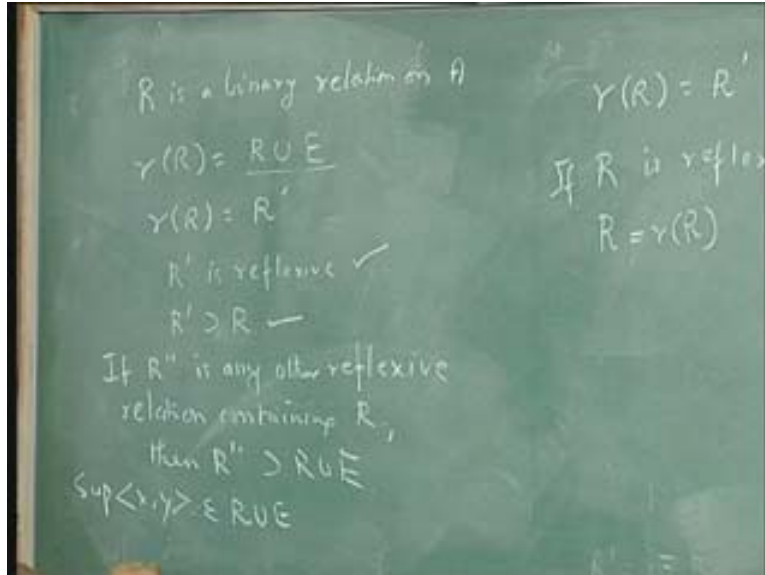 R is a binary relation on A
r(R) = R U E
r(R) = R'
R' is reflexive ✓
R' ⊃ R ✓
If R" is any other reflexive
relation containing R,
then R" ⊃ R U E
Sup <x,y> ε R U E
r(R) = R'
If R is reflex
R = r(R)